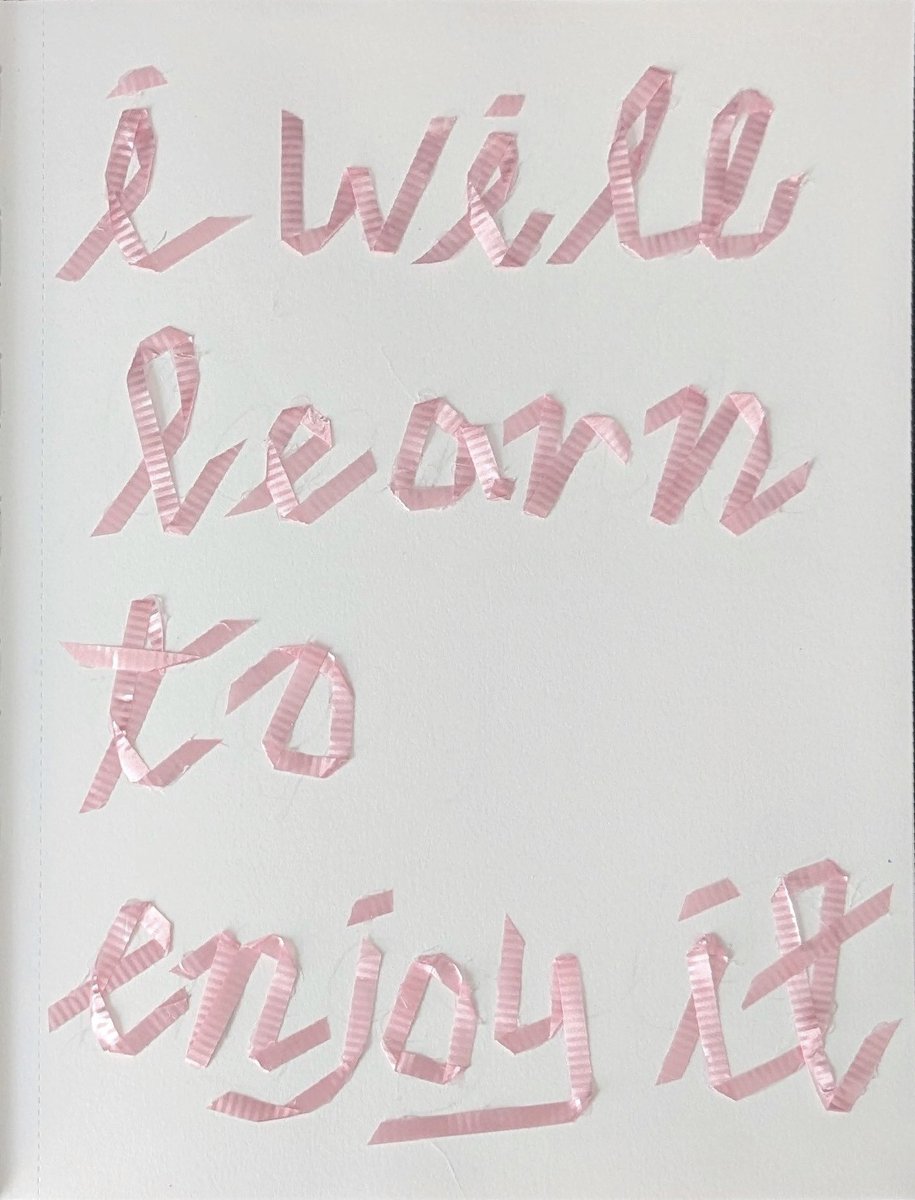 i will
learn
to
enjoy it